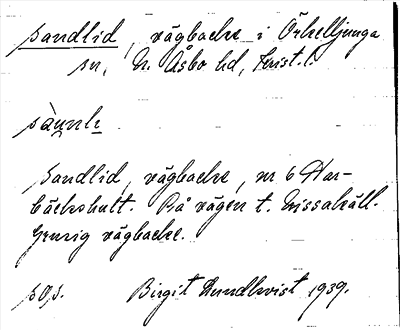 Sandlid, vägbacke i Örkelljunga
sn, N. Åsbo hd, Krist. l.
Sandlid, vägbacke, nr 6 Har-
bäckshult. På vägen t. Lissakäll.
Grusig vägbacke.
Birgit Lundkvist 1939.